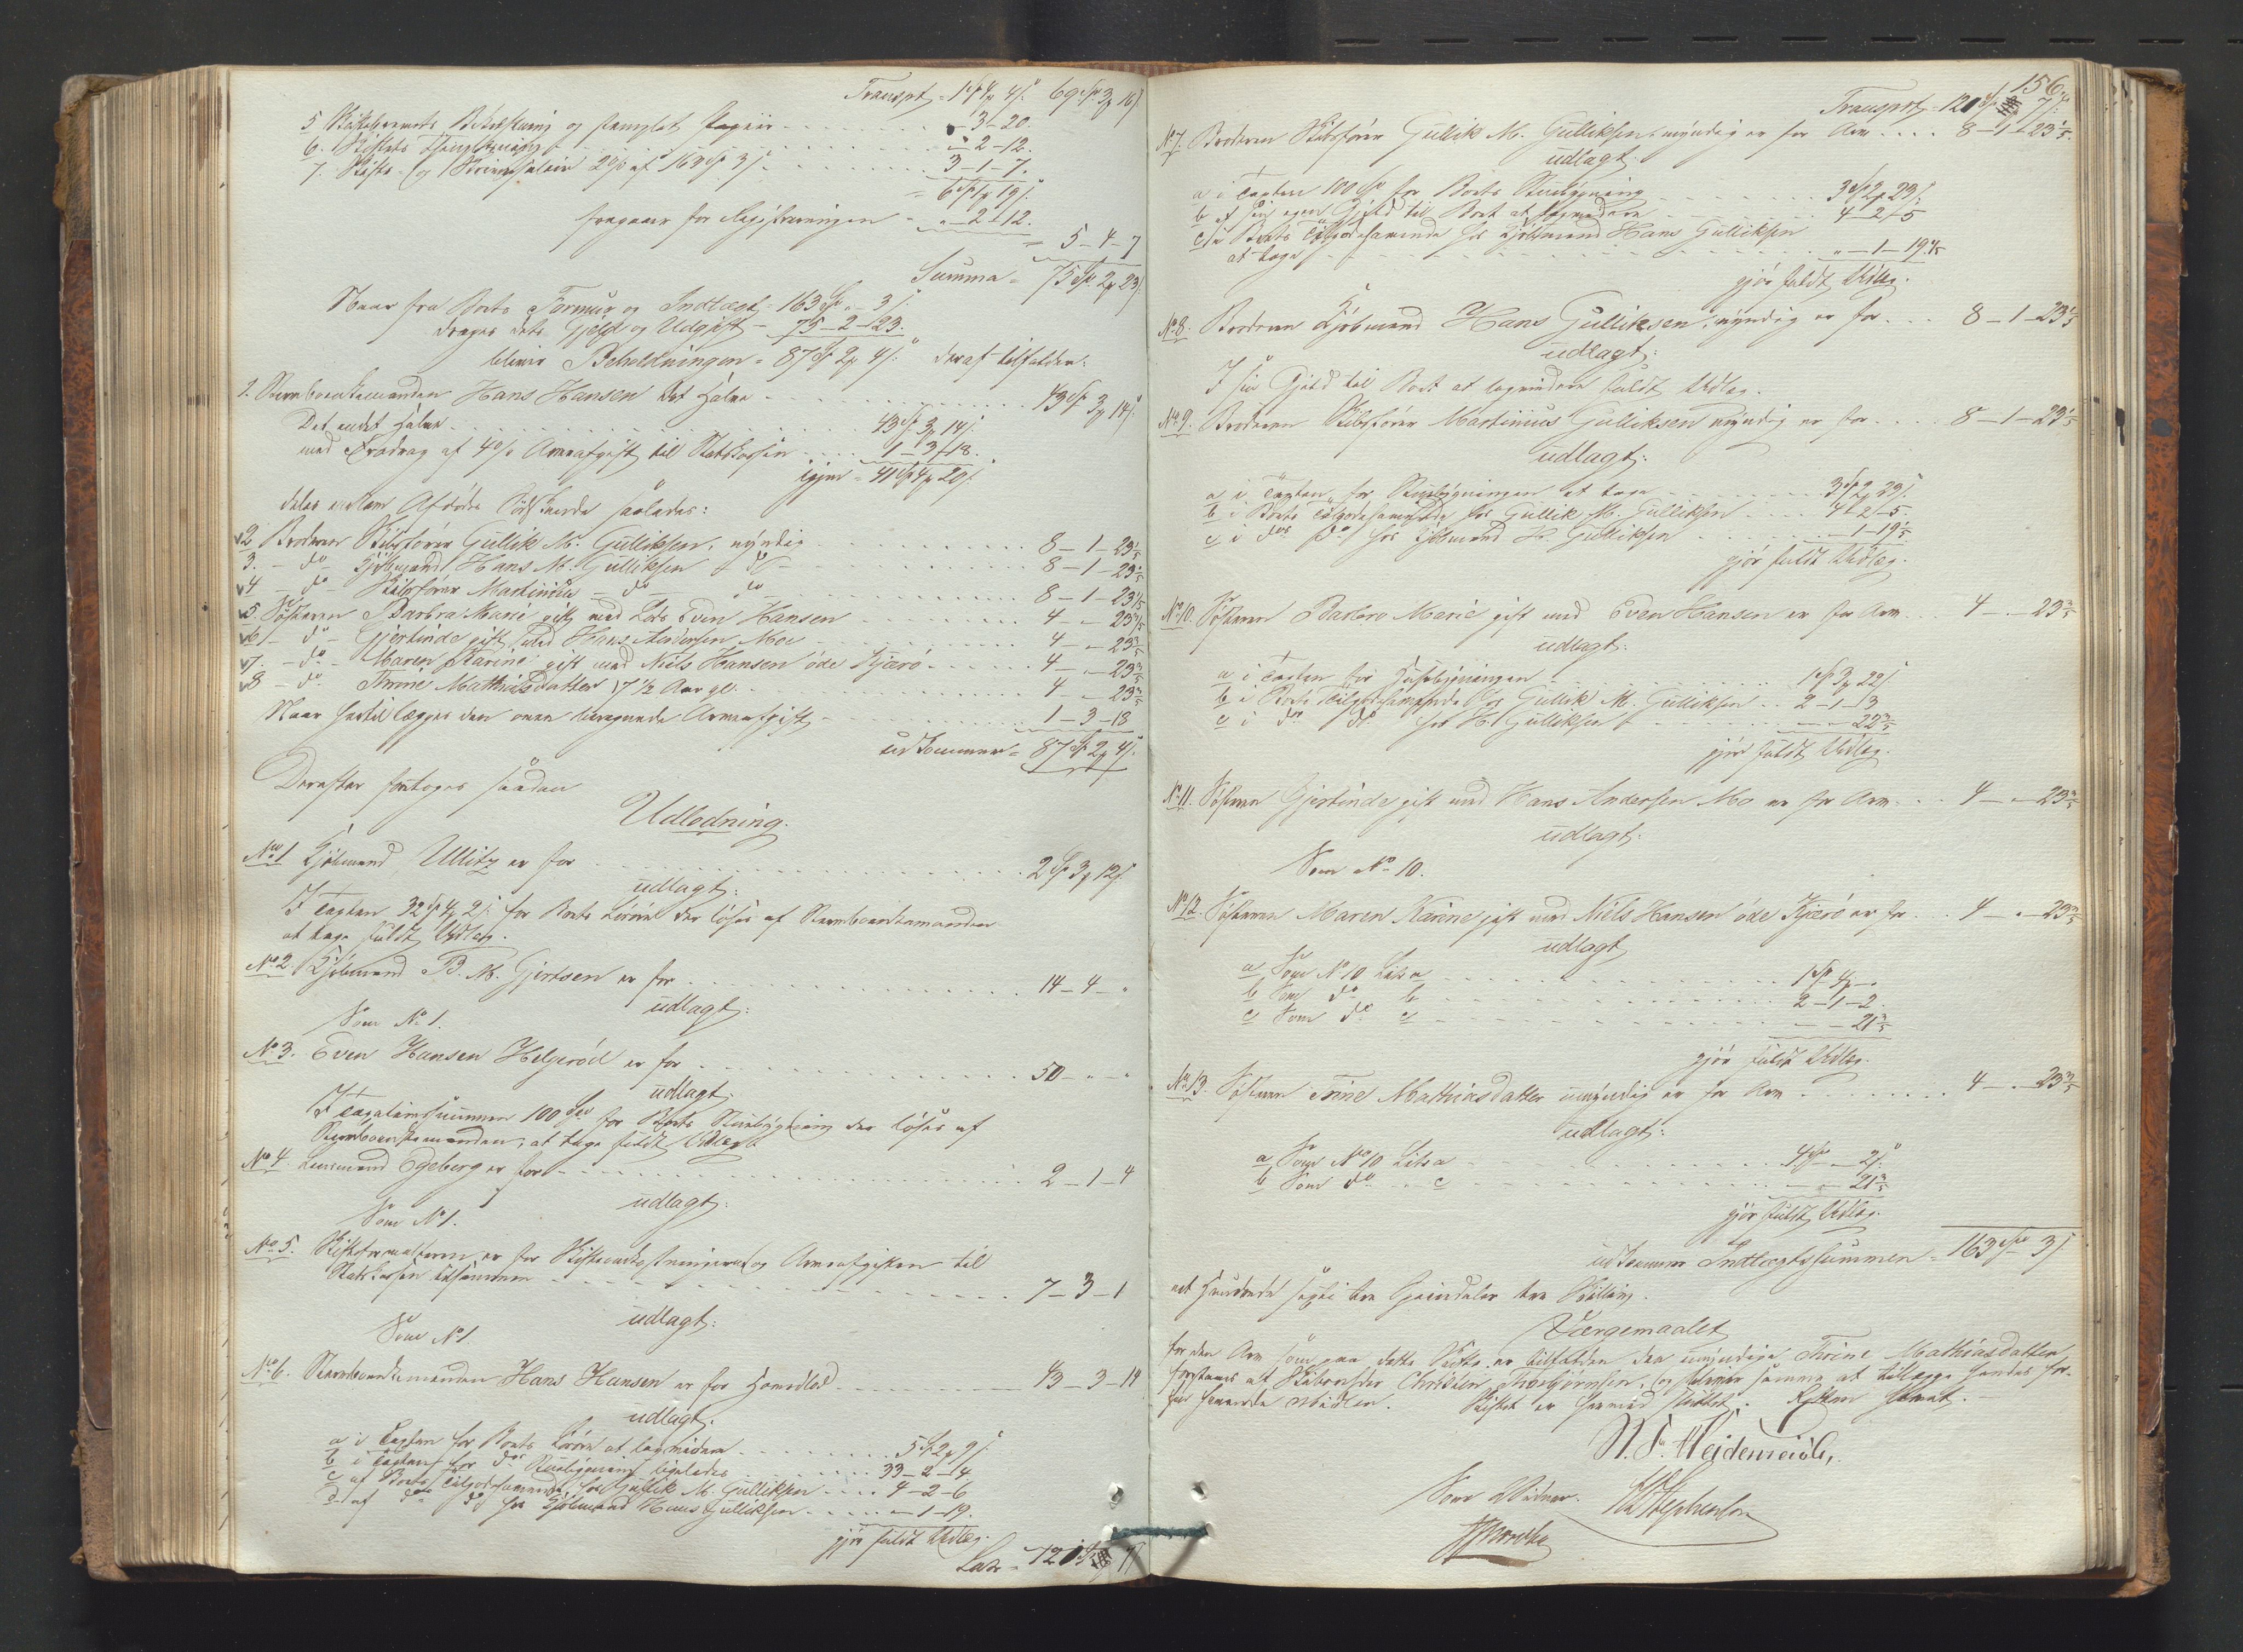 Transpt = 1 Sp 4 ß 69 Sp 3 16 ß
5 Skiftebrevets Beskrivning og stemplet Papiir - 3 - 20.
6. Skiftets - 2 - 12.
7. Skifte- og Skriversalair 2 % af 163 Sp 3 ß - 3 - 1 - 7.
= 6 Sp 1 19 ß
fragaaer for Registreringen - " - 2 - 12.
= 5 - 4 - 7
Summa = 75 Sp 2 23 ß
Naar fra Boets Formue og Indtægt - 163 Sp " 3 ß
drages dets Gjeld og Udgift - 75 - 2 - 23.
bliver Beholdningen = 87 Sp 2 4 ß. deraf tilfalder:
1. Stervboenkemanden Hans Hansen det halve - 43 Sp 3 14 ß
Det andet halve - 43 Sp 3 14 ß
med Fradrag af 4 % Arveafgift til Statskassen - 1 - 3 - 18.
igjen = 41 Sp 4 20 ß
deles mellem Afdødes Sødskende saaledes:
2 Broderen Skibsfører Gullik M. Gulliksen, myndig - 8 - 1 - 23 1/5
3. - do - Kjøbmand Hans M. Gulliksen do - 8 - 1 - 23 1/5
4 - do - Skibsfører Martinius - do - 8 - 1 - 23 1/5
5. Søsteren Barbra Marie gift med Even Hansen 4 - " - 23 3/5
6 - do - Gjertinde gift med Hans Andersen Moe 4 - " - 23 3/5
7. - do - Maren Karine gift med Niels Hansen øde Kjærø 4 - " - 23 3/5
8 - do - Thrine Mathiasdatter 17 1/2 Aar gl. 4 - " - 23 3/5
Naar hertil lægges den oven beregnede Arveafgift - 1 - 3 - 18
udkommer = 87 Sp 2 4 ß.
Derefter foretoges saadan
Udlodning.
No 1 Kjøbmand Ullitz er for 2 Sp 3 12 ß
udlagt:
I Taxten 32 Sp 4 2 ß for Boets Løsøre der løses af Stervboenkemanden
at tage fuldt Udlæg.
No 2. Kjøbmand B. M. Gjertsen er for 14 - 4 - "
udlagt:
Som No 1.
No 3. Even Hansen Helgerød er for 50 - " - "
udlagt:
I Taxationssummen 100 Sp for Boets Huusbygning der løses af
Stervboenkemanden, at tage fuldt Udlæg
No 4. Lensmand Egeberg er for - 2 - 1 - 4
udlagt:
Som No 1.
No 5. Skifteforvalteren er for Skifteomkostningerne og Arveafgiften til
Statskassen tilsammen 7 - 3 - 1
udlagt:
Som No 1
No 6. Stervboenkemanden Hans Hansen er for Hovedlod 43 - 3 - 14
udlagt.
a i Taxten for Boets Løsøre at lagvidere 5 Sp 2 9 ß
b i Taxten for do Huusbygning ligeledes 33 - 2 - 4
c af Boets Tilgodehavende hos Gullik M. Gulliksen 4 - 2 - 6
d af do do hos Kjøbmand Hans Gulliksen " - 1 - 19.
gjør fuldt Udlæg.
Lats = 120 Sp 7 ß
156.
Transport = 120 Sp 7 ß.
No 7. Broderen Skibsfører Gullik M. Gulliksen, myndig er for Arv 8 - 1 - 23 1/5
udlagt:
a i Taxten 100 Sp for Boets Huusbygning 3 Sp 2 23 ß
b af sin egen Gjeld til Boet at lagvidere 4 - 2 - 5
c i Boets Tilgodehavende hos Kjøbmand Hans Gulliksen
at tage " - 1 - 19 1/5
gjør fuldt Udlæg.
No 8. Broderen Kjøbmand Hans Gulliksen, myndig er for 8 - 1 - 23 1/5
udlagt:
I sin Gjeld til Boet at lagvidere fuldt Udlæg.
No 9. Broderen Skibsfører Martinius Gulliksen myndig er for 8 - 1 - 23 1/5
udlagt:
a i Taxten for Huusbygningen at tage 3 Sp 2 23 ß
b i Boets Tilgodehavende hos Gullik M. Gulliksen 4 - 2 - 5.
c i do do hos Kjøbmand H. Gulliksen - 1 - 19 1/5
gjør fuldt Udlæg.
No 10. Søsteren Barbro Marie gift med Even Hansen er for Arv 4 - " - 23 3/5
udlagt:
a i Taxten for Husbygningen 1 Sp 3 22 ß
b i Boets Tilgodehavende hos Gullik M. Gulliksen 2 - 1 - 3
c i do do hos H. Gulliksen - " - 22 3/5
gjør fuldt Udlæg.
No 11. Søsteren Gjertinde gift med Hans Andersen Mo er for Arv 4 - " - 23 3/5
udlagt:
Som No 10.
No 12. Søsteren Maren Karine gift med Niels Hansen øde Kjærø er for 4 - " - 23 3/5
udlagt
a Som No 10 Litr a 1 Sp 4 - "
b Som do b 2 - 1 - 2.
c Som do c - " - 21 3/5
gjør fuldt Udlæg.
No 13. Søsteren Trine Mathiasdatter umyndig er for Arv 4 - " - 23 3/5
udlagt:
a Som No 10 Litr a 4 Sp - " 2 ß
b Som do c - " - 21 3/5
gjør fuldt Udlæg.
udkommer Indtægtssummen = 163 Sp 3 ß
et Hundrede Sexti tre Speciedaler tre Skilling.
Værgemaalet
for den Arv som paa dette Skifte er tilfalden den umyndige Trine Mathiasdatter,
forestaaes af Skibsreder Christen Thorbjørnsen, og bliver samme at tillægge hendes for-
hen havende Midler. Skiftet er hermed sluttet. Retten hævet.
N. S. Heidenreich,
Som Vidner. Stephensen